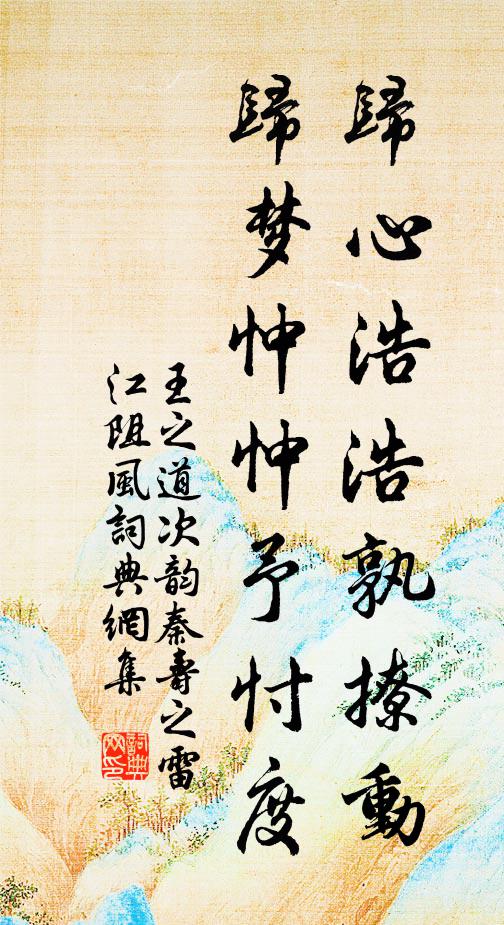 歸心浩浩孰撩動
歸梦忡忡予忖度
王之道次韵秦壽之雷
江阻風詞典網集
詞典
网印